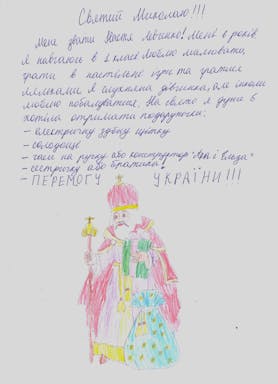 Святий Миколаю!!!
Мене звати Настя Левинко! Мені 6 років
я навчаюся в 1 класі. Люблю малювати,
грати в настільні ігри та гратися
ляльками. Я слухняна дівчинка, але інколи
люблю побалуватися. На свято я дуже б
хотіла отримати подарунок:
- електричну зубну щітку
- солодощі
- часи на ручку або конструктор "Ана і Влада"
- сестричку або братика!
- ПЕРЕМОГУ УКРАЇНИ!!!